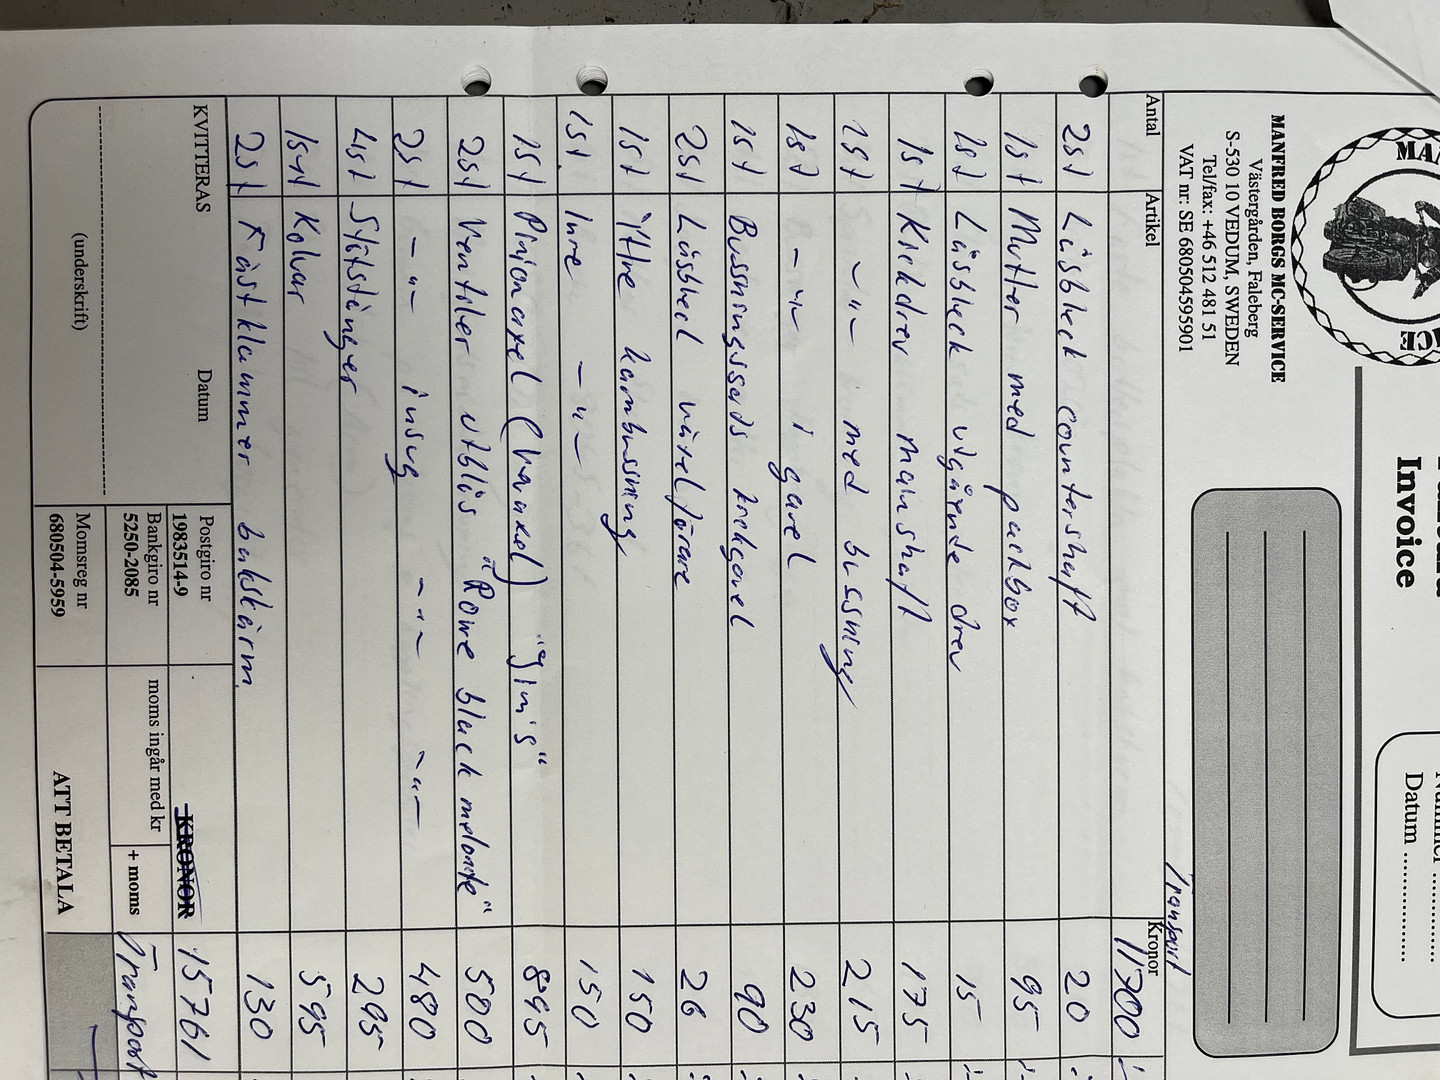 Invoice
Datum ..............
MANFRED BORGS MC-SERVICE
Västergården, Faleberg
S-530 10 VEDUM, SWEDEN
Tel/fax: +46 512 481 51
VAT nr: SE 680504595901
Transport
Antal Artikel Kronor
11700 :-
2st Låsbleck countershaft 20 :-
1st Mutter med packbox 95 :-
1st Låsbleck utgående drev 15 :-
1st Kickdrev mainshaft 175 :-
1st -"- med bussning 215 :-
1st -"- i gavel 230
1st Bussningssats kickgavel 90
2st Låsbleck växelförare 26 :-
1st Yttre kambussning 150
1st. Inre -"- 150
1st Pinionaxel (kamaxel) "Jim's" 895
2st Ventiler utblås "Rowe black melonite" 500
2st -"- insug -"- -"- 480
4st Stötstänger 295
1st Kolvar 595
2st Fästklammer bakskärm 130
KVITTERAS Datum
(underskrift)
Postgiro nr
1983514-9
Bankgiro nr
5250-2085
Momsreg nr
680504-5959
KRONOR 15761
moms ingår med kr + moms Transport
ATT BETALA